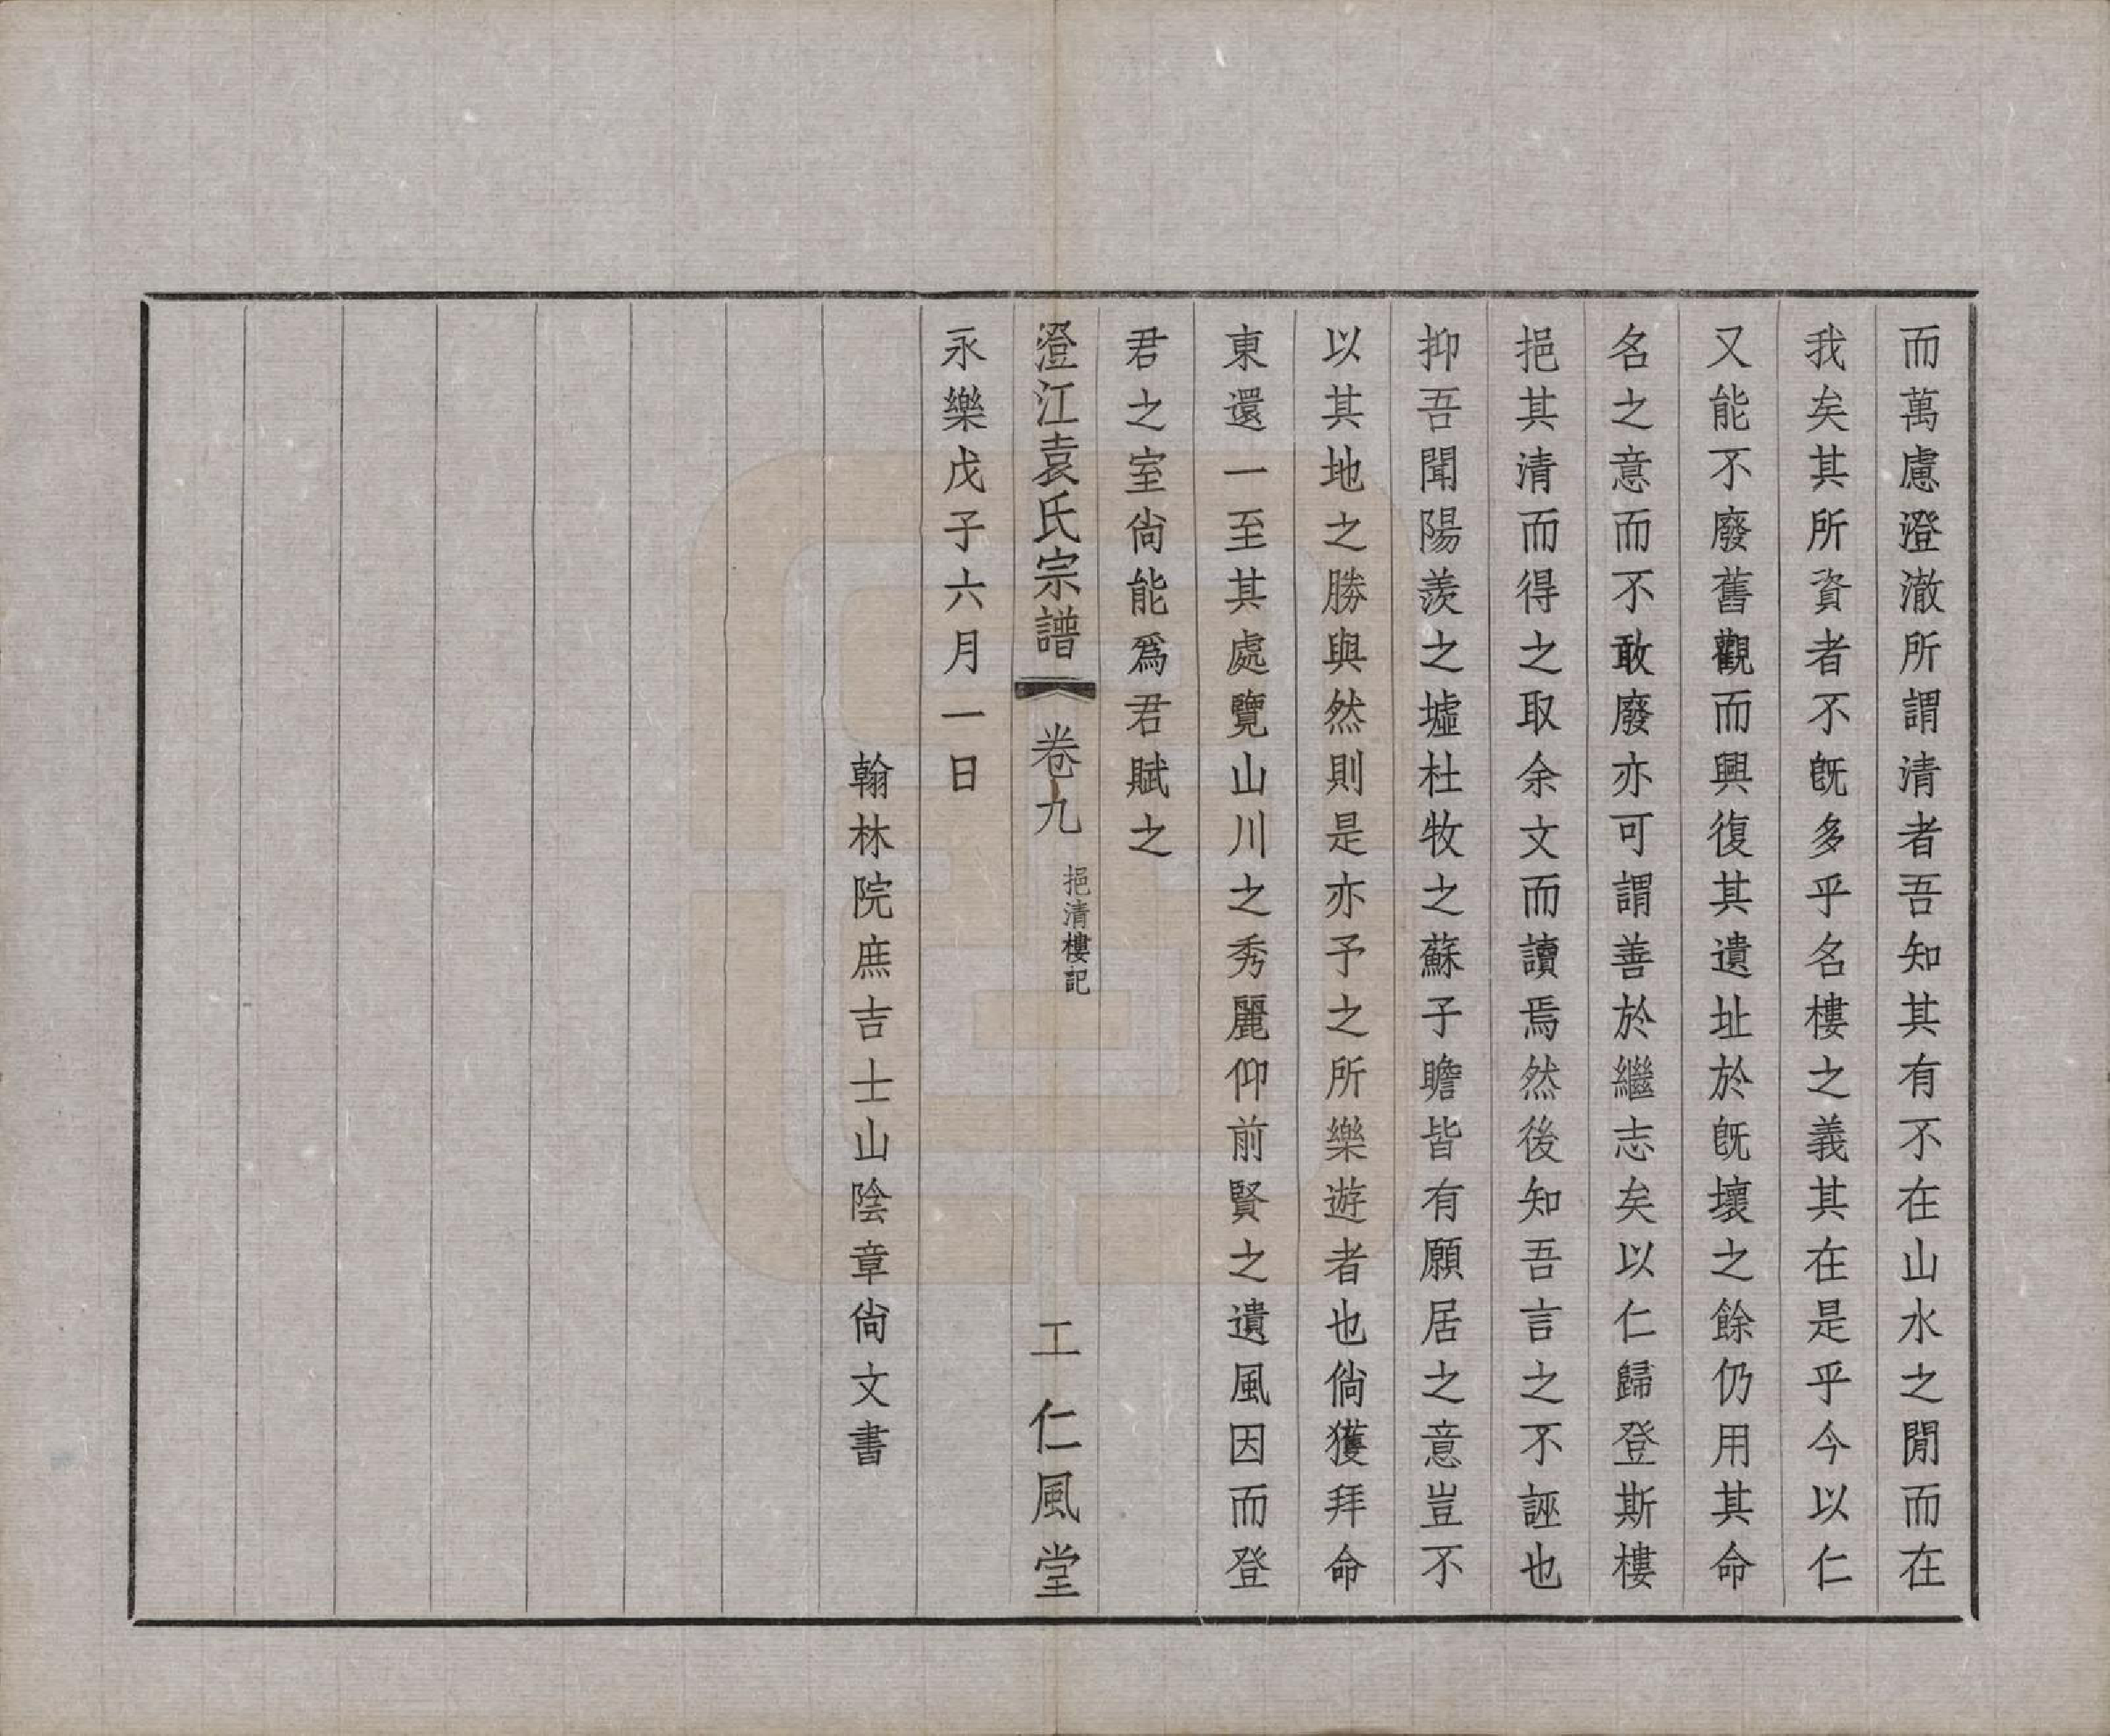 而萬慮澄澈所謂清者吾知其有不在山水之閒而在
我矣其所資者不旣多乎名樓之義其在是乎今以仁
又能不廢舊觀而興復其遺址於旣壞之餘仍用其命
名之意而不敢廢亦可謂善於繼志矣以仁歸登斯樓
挹其清而得之取余文而讀焉然後知吾言之不誣也
抑吾聞陽羨之墟杜牧之蘇子瞻皆有願居之意豈不
以其地之勝與然則是亦予之所樂遊者也倘獲拜命
東還一至其處覽山川之秀麗仰前賢之遺風因而登
君之室尙能爲君賦之
澄江袁氏宗譜 卷九 挹清樓記 工 仁風堂
永樂戊子六月一日
翰林院庶吉士山陰章尙文書